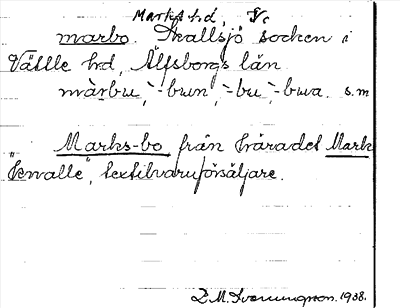 Marks hd, V.
marbo. Skallsjö socken i
Vättle hd, Älfsborgs län
màrbu, -bun, -bu, -bua. s.m
Marks-bo, från häradet Mark
"knalle", textilvaruförsäljare.
L.M. Svenungson. 1938.